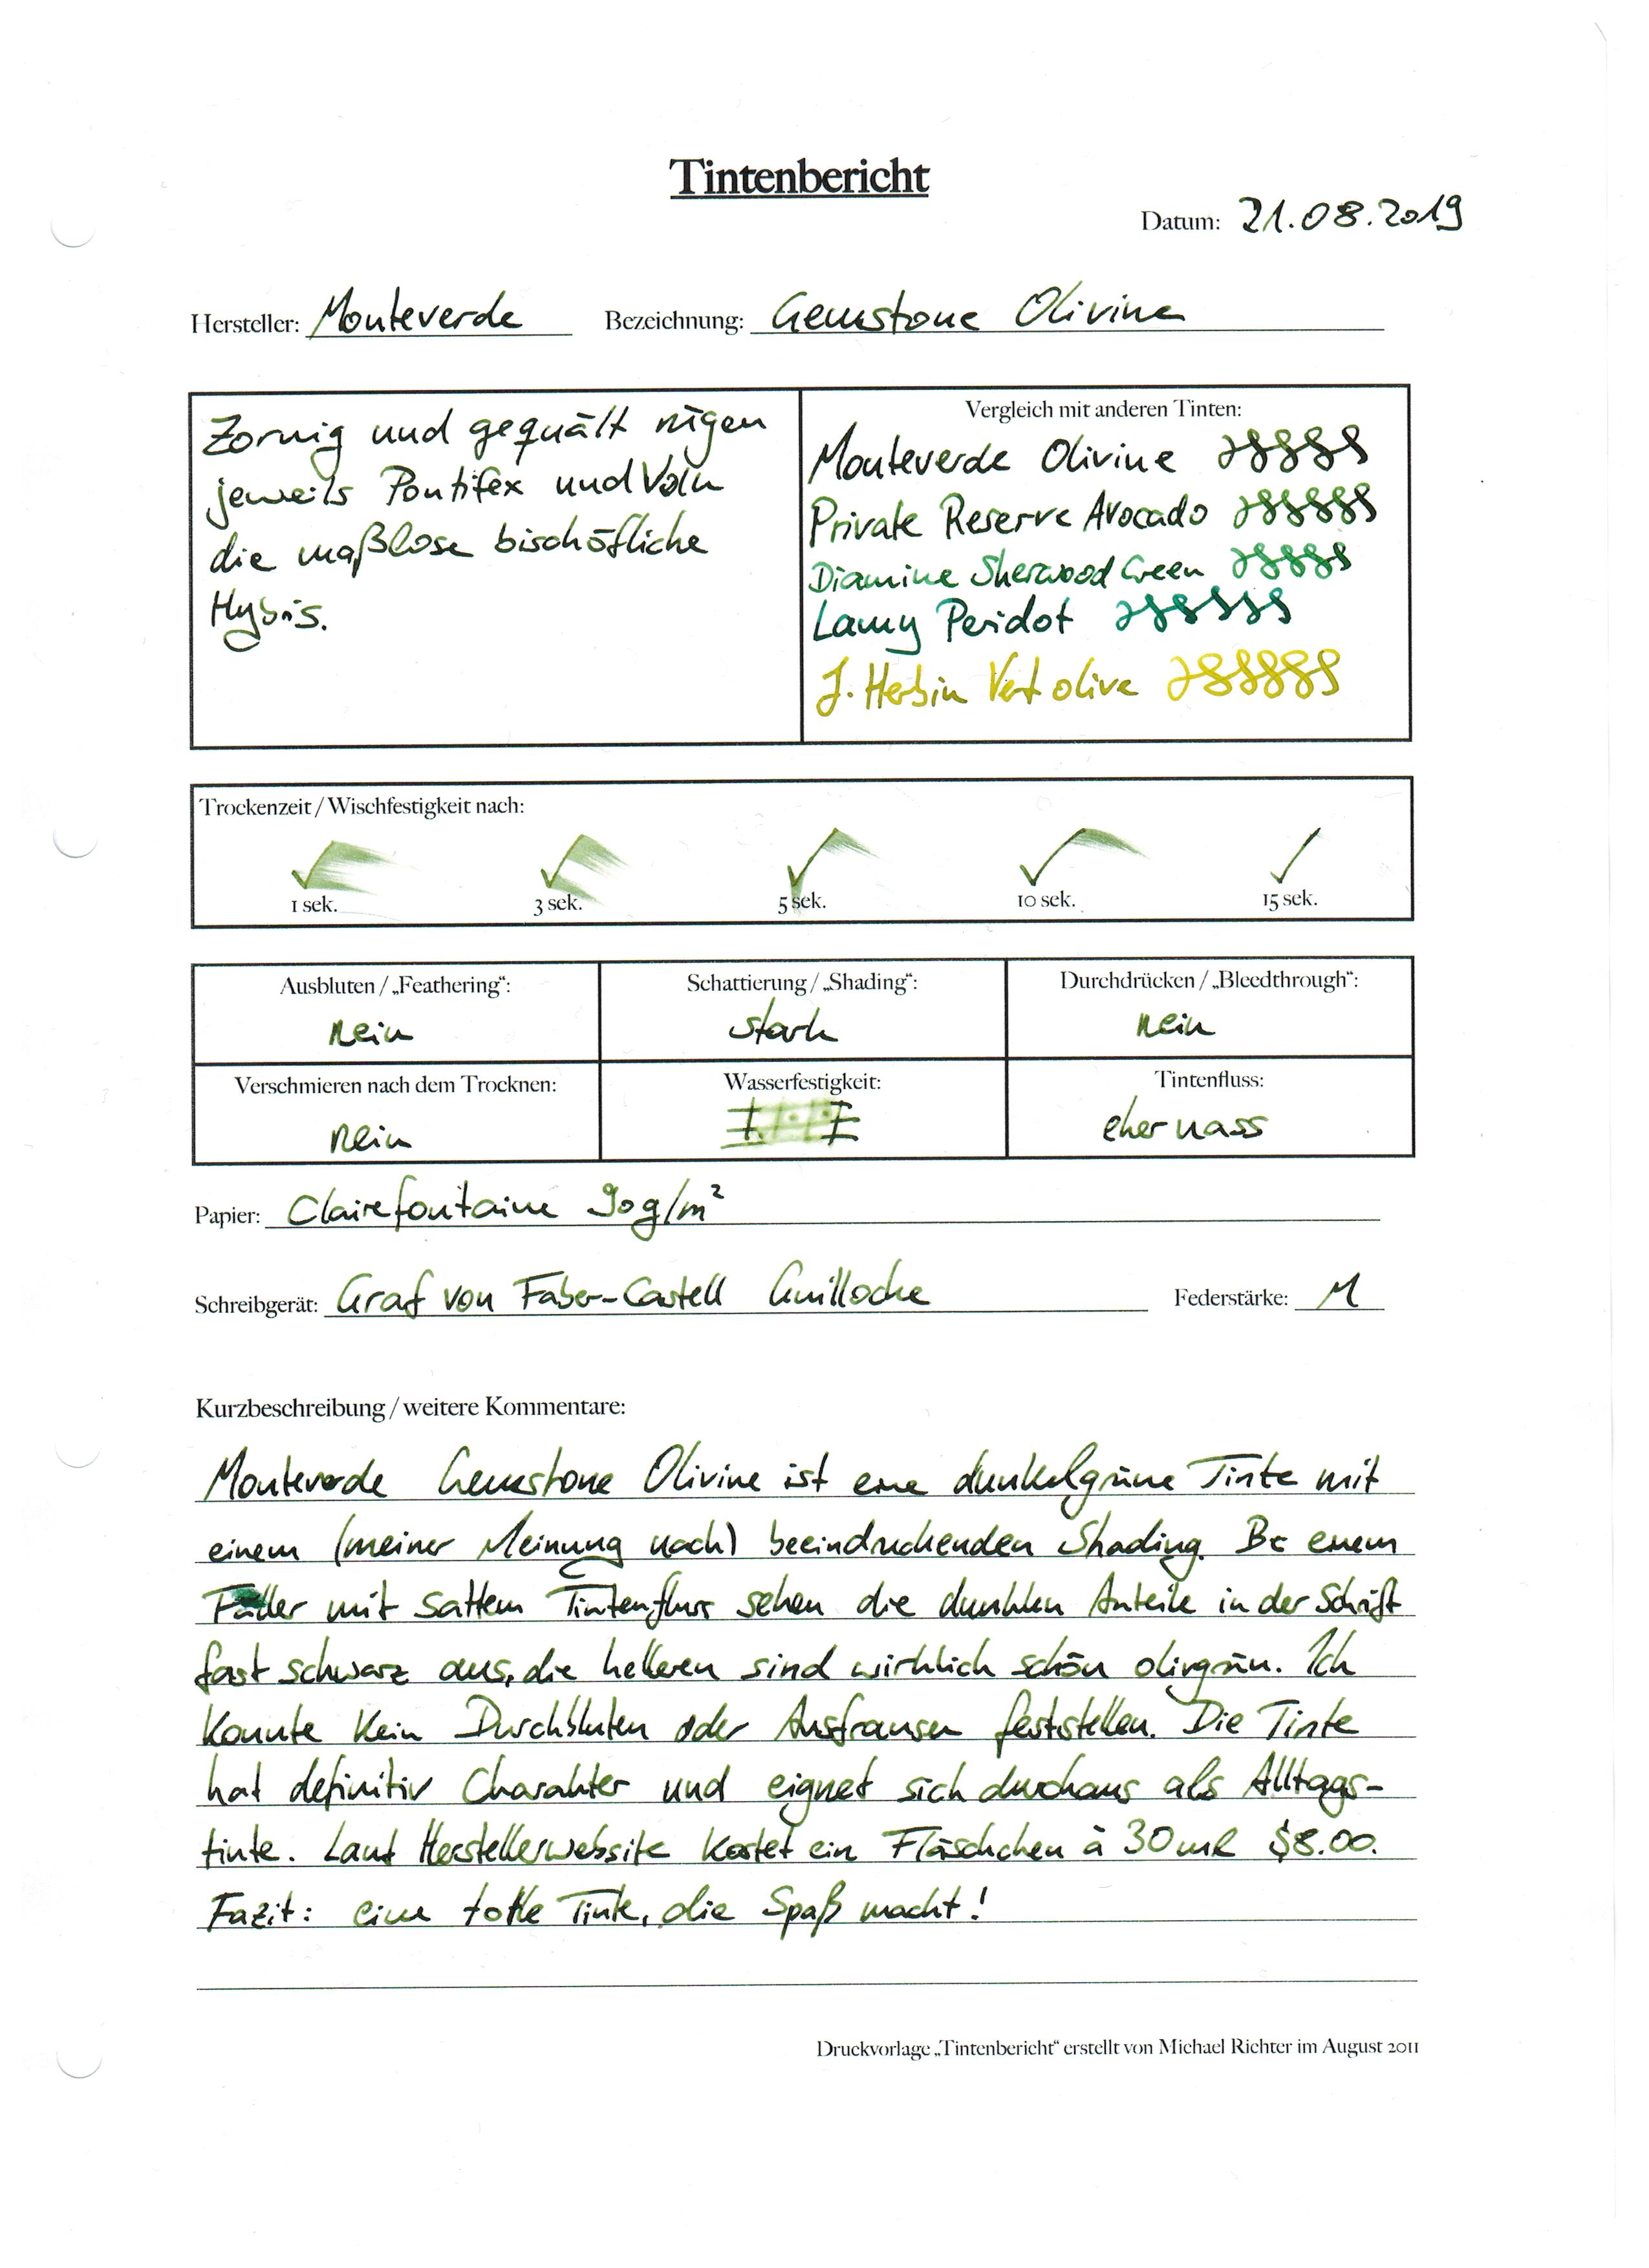 Tintenbericht
Datum: 21.08.2019
Hersteller: Monteverde Bezeichnung: Gemstone Olivine
Zornig und gequält rügen
jeweils Pontifex und Volk
die maßlose bischöfliche
Hybris.
Vergleich mit anderen Tinten:
Monteverde Olivine
Private Reserve Avocado
Diamine Sherwood Green
Lamy Peridot
J. Herbin Vert olive
Trockenzeit / Wischfestigkeit nach:
1 sek. 3 sek. 5 sek. 10 sek. 15 sek.
Ausbluten / „Feathering“: Schattierung / „Shading“: Durchdrücken / „Bleedthrough“:
nein stark nein
Verschmieren nach dem Trocknen: Wasserfestigkeit: Tintenfluss:
nein eher nass
Papier: Clairefontaine 90g/m²
Schreibgerät: Graf von Faber-Castell Guilloche Federstärke: M
Kurzbeschreibung / weitere Kommentare:
Monteverde Gemstone Olivine ist eine dunkelgrüne Tinte mit
einem (meiner Meinung nach) beeindruckenden Shading. Bei einem
Füller mit sattem Tintenfluss sehen die dunklen Anteile in der Schrift
fast schwarz aus, die helleren sind wirklich schön olivgrün. Ich
konnte kein Durchbluten oder Ausfransen feststellen. Die Tinte
hat definitiv Charakter und eignet sich durchaus als Alltags-
tinte. Laut Herstellerwebsite kostet ein Fläschchen à 30 ml $8.00.
Fazit: eine tolle Tinte, die Spaß macht!
Druckvorlage „Tintenbericht“ erstellt von Michael Richter im August 2011